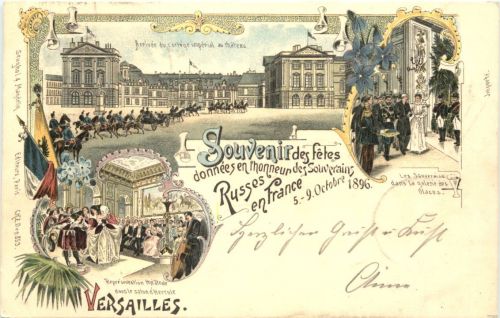 Arrivée du cortège impérial au château
Souvenir des fêtes
données en l'honneur des Souverains
Russes
en France
5.-9. Octobre 1896.
Les Souverains
dans la galerie des
Glaces.
Représentation théâtrale
dans le salon d'Hercule
VERSAILLES.
Herzlicher Gruss & Kuss
Anna